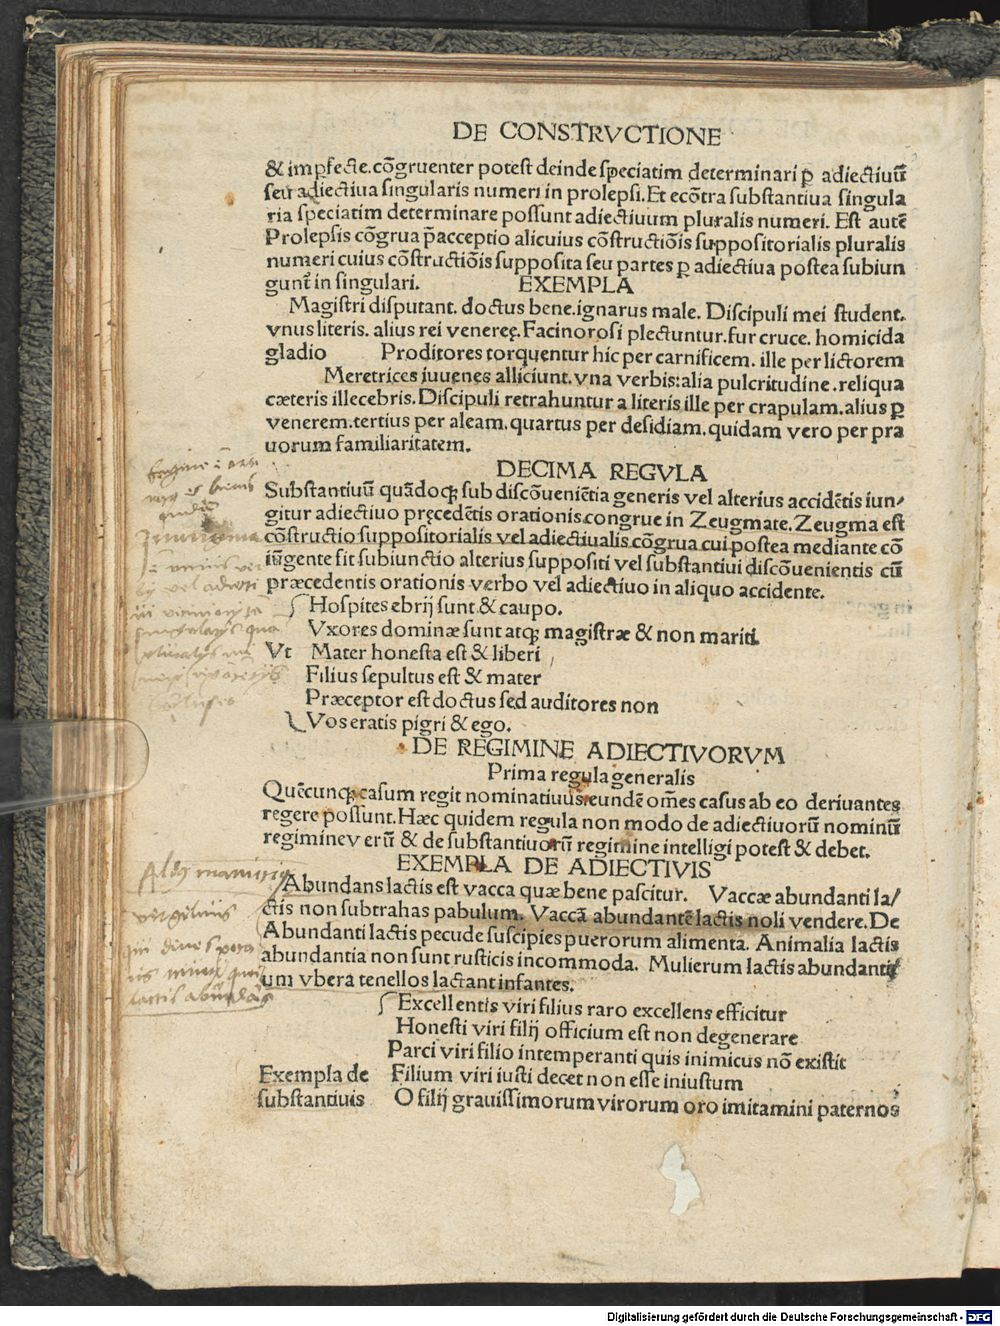 DE CONSTRVCTIONE
& imꝑfecte.cõgruenter potest deinde speciatim determinari ꝑ adiectiuũ
seu adiectiua singularis numeri in prolepsi.Et ecõtra substantiua singula
ria speciatim determinare possunt adiectiuum pluralis numeri. Est autẽ
Prolepsis cõgrua p̃acceptio alicuius cõstructiõis suppositorialis pluralis
numeri cuius cõstructiõis supposita seu partes ꝑ adiectiua postea subiun
gunt̃ in singulari. EXEMPLA
Magistri disputant. doctus bene.ignarus male. Discipuli mei student.
vnus literis. alius rei venereę.Facinorosi plectuntur.fur cruce. homicida
gladio Proditores torquentur hic per carnificem. ille per lictorem
Meretrices iuuenes alliciunt.vna verbis:alia pulcritudine.reliqua
cæteris illecebris.Discipuli retrahuntur a literis ille per crapulam.alius ꝑ
venerem.tertius per aleam.quartus per desidiam.quidam vero per pra
uorum familiaritatem.
DECIMA REGVLA
Substantiuũ quãdoqꝫ sub discõueniẽtia generis vel alterius accidẽtis iun/
gitur adiectiuo pręcedẽtis orationis.congrue in Zeugmate.Zeugma est
cõstructio suppositorialis vel adiectiualis cõgrua cui postea mediante cõ
iũgente fit subiunctio alterius suppositi vel substantiui discõuenientis cũ
præcedentis orationis verbo vel adiectiuo in aliquo accidente.
Hospites ebrij sunt & caupo.
Vxores dominæ sunt atqꝫ magistræ & non mariti.
Vt Mater honesta est & liberi
Filius sepultus est & mater
Præceptor est doctus sed auditores non
Vos eratis pigri & ego.
DE REGIMINE ADIECTIVORVM
Prima regula generalis
Quẽcunqꝫ casum regit nominatiuus.eundẽ om̃es casus ab eo deriuantes
regere possunt.Hæc quidem regula non modo de adiectiuorũ nominũ
regiminev erũ & de substantiuorũ regimine intelligi potest & debet.
EXEMPLA DE ADIECTIVIS
Aldꝫ manutius
Abundans lactis est vacca quæ bene pascitur. Vaccæ abundanti la/
vergilius
ctis non subtrahas pabulum. Vaccã abundantẽ lactis noli vendere.De
Abundanti lactis pecude suscipies puerorum alimenta. Animalia lactis
abundantia non sunt rusticis incommoda. Mulierum lactis abundanti
lactis abũdãs
um vbera tenellos lactant infantes.
Excellentis viri filius raro excellens efficitur
Honesti viri filij officium est non degenerare
Parci viri filio intemperanti quis inimicus nõ existit
Exempla de Filium viri iusti decet non esse iniustum
substantiuis O filij grauissimorum virorum oro imitamini paternos
Digitalisierung gefördert durch die Deutsche Forschungsgemeinschaft - DFG